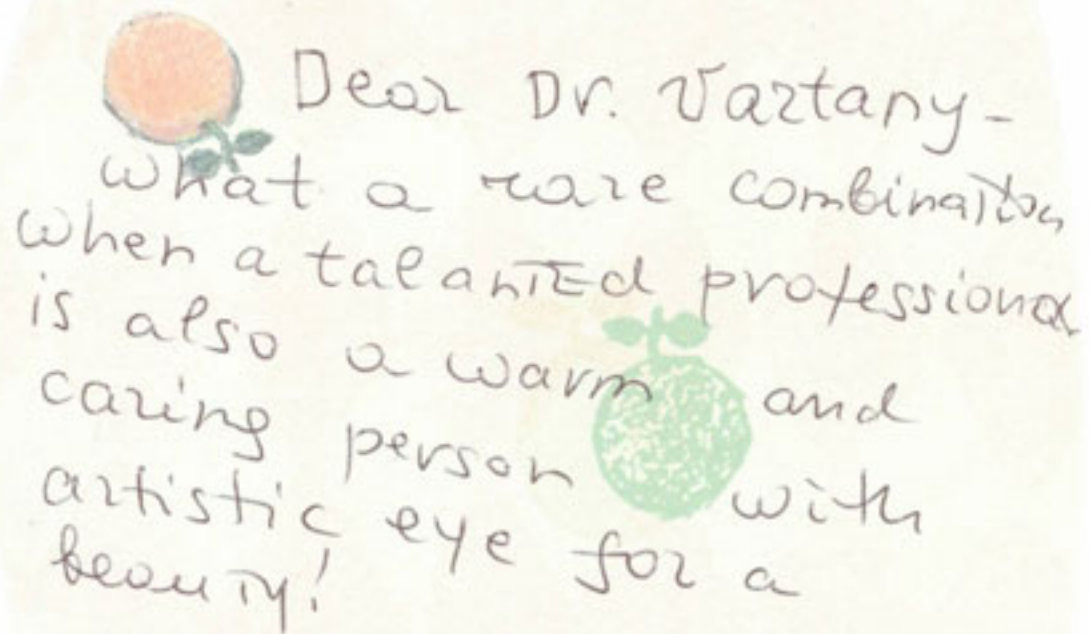 Dear Dr. Vartany-
what a rare combination
when a talanted professional
is also a warm and
caring person with
artistic eye for a
beauty!